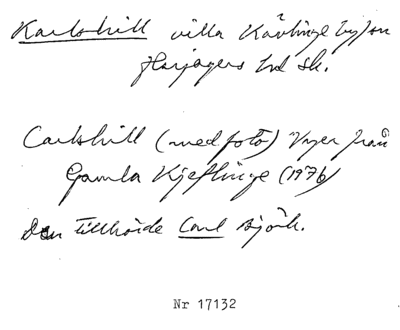 Karlshill villa Kävlinge by/sn
Harjagers hd Sk.
Carlshill (med foto) Vyer från
Gamla Kjeflinge (1976)
Den tillhörde Carl Björk.
Nr 17132